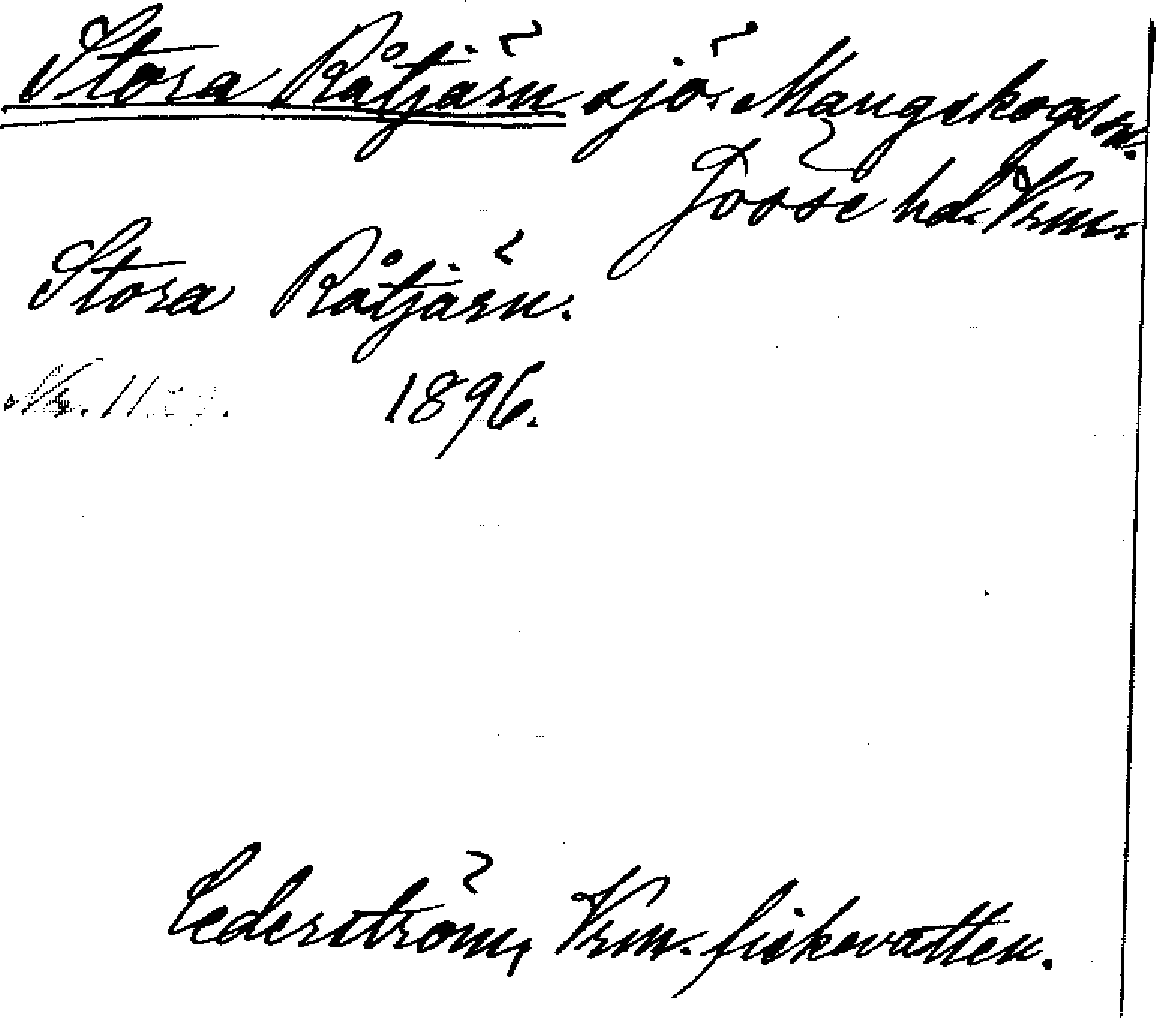 Stora Råtjärn sjö. Mangskogs sn.
Jösse hd. Vrm.
Stora Råtjärn.
Nr. 1896.
Cederström, Vrm. fiskevatten.